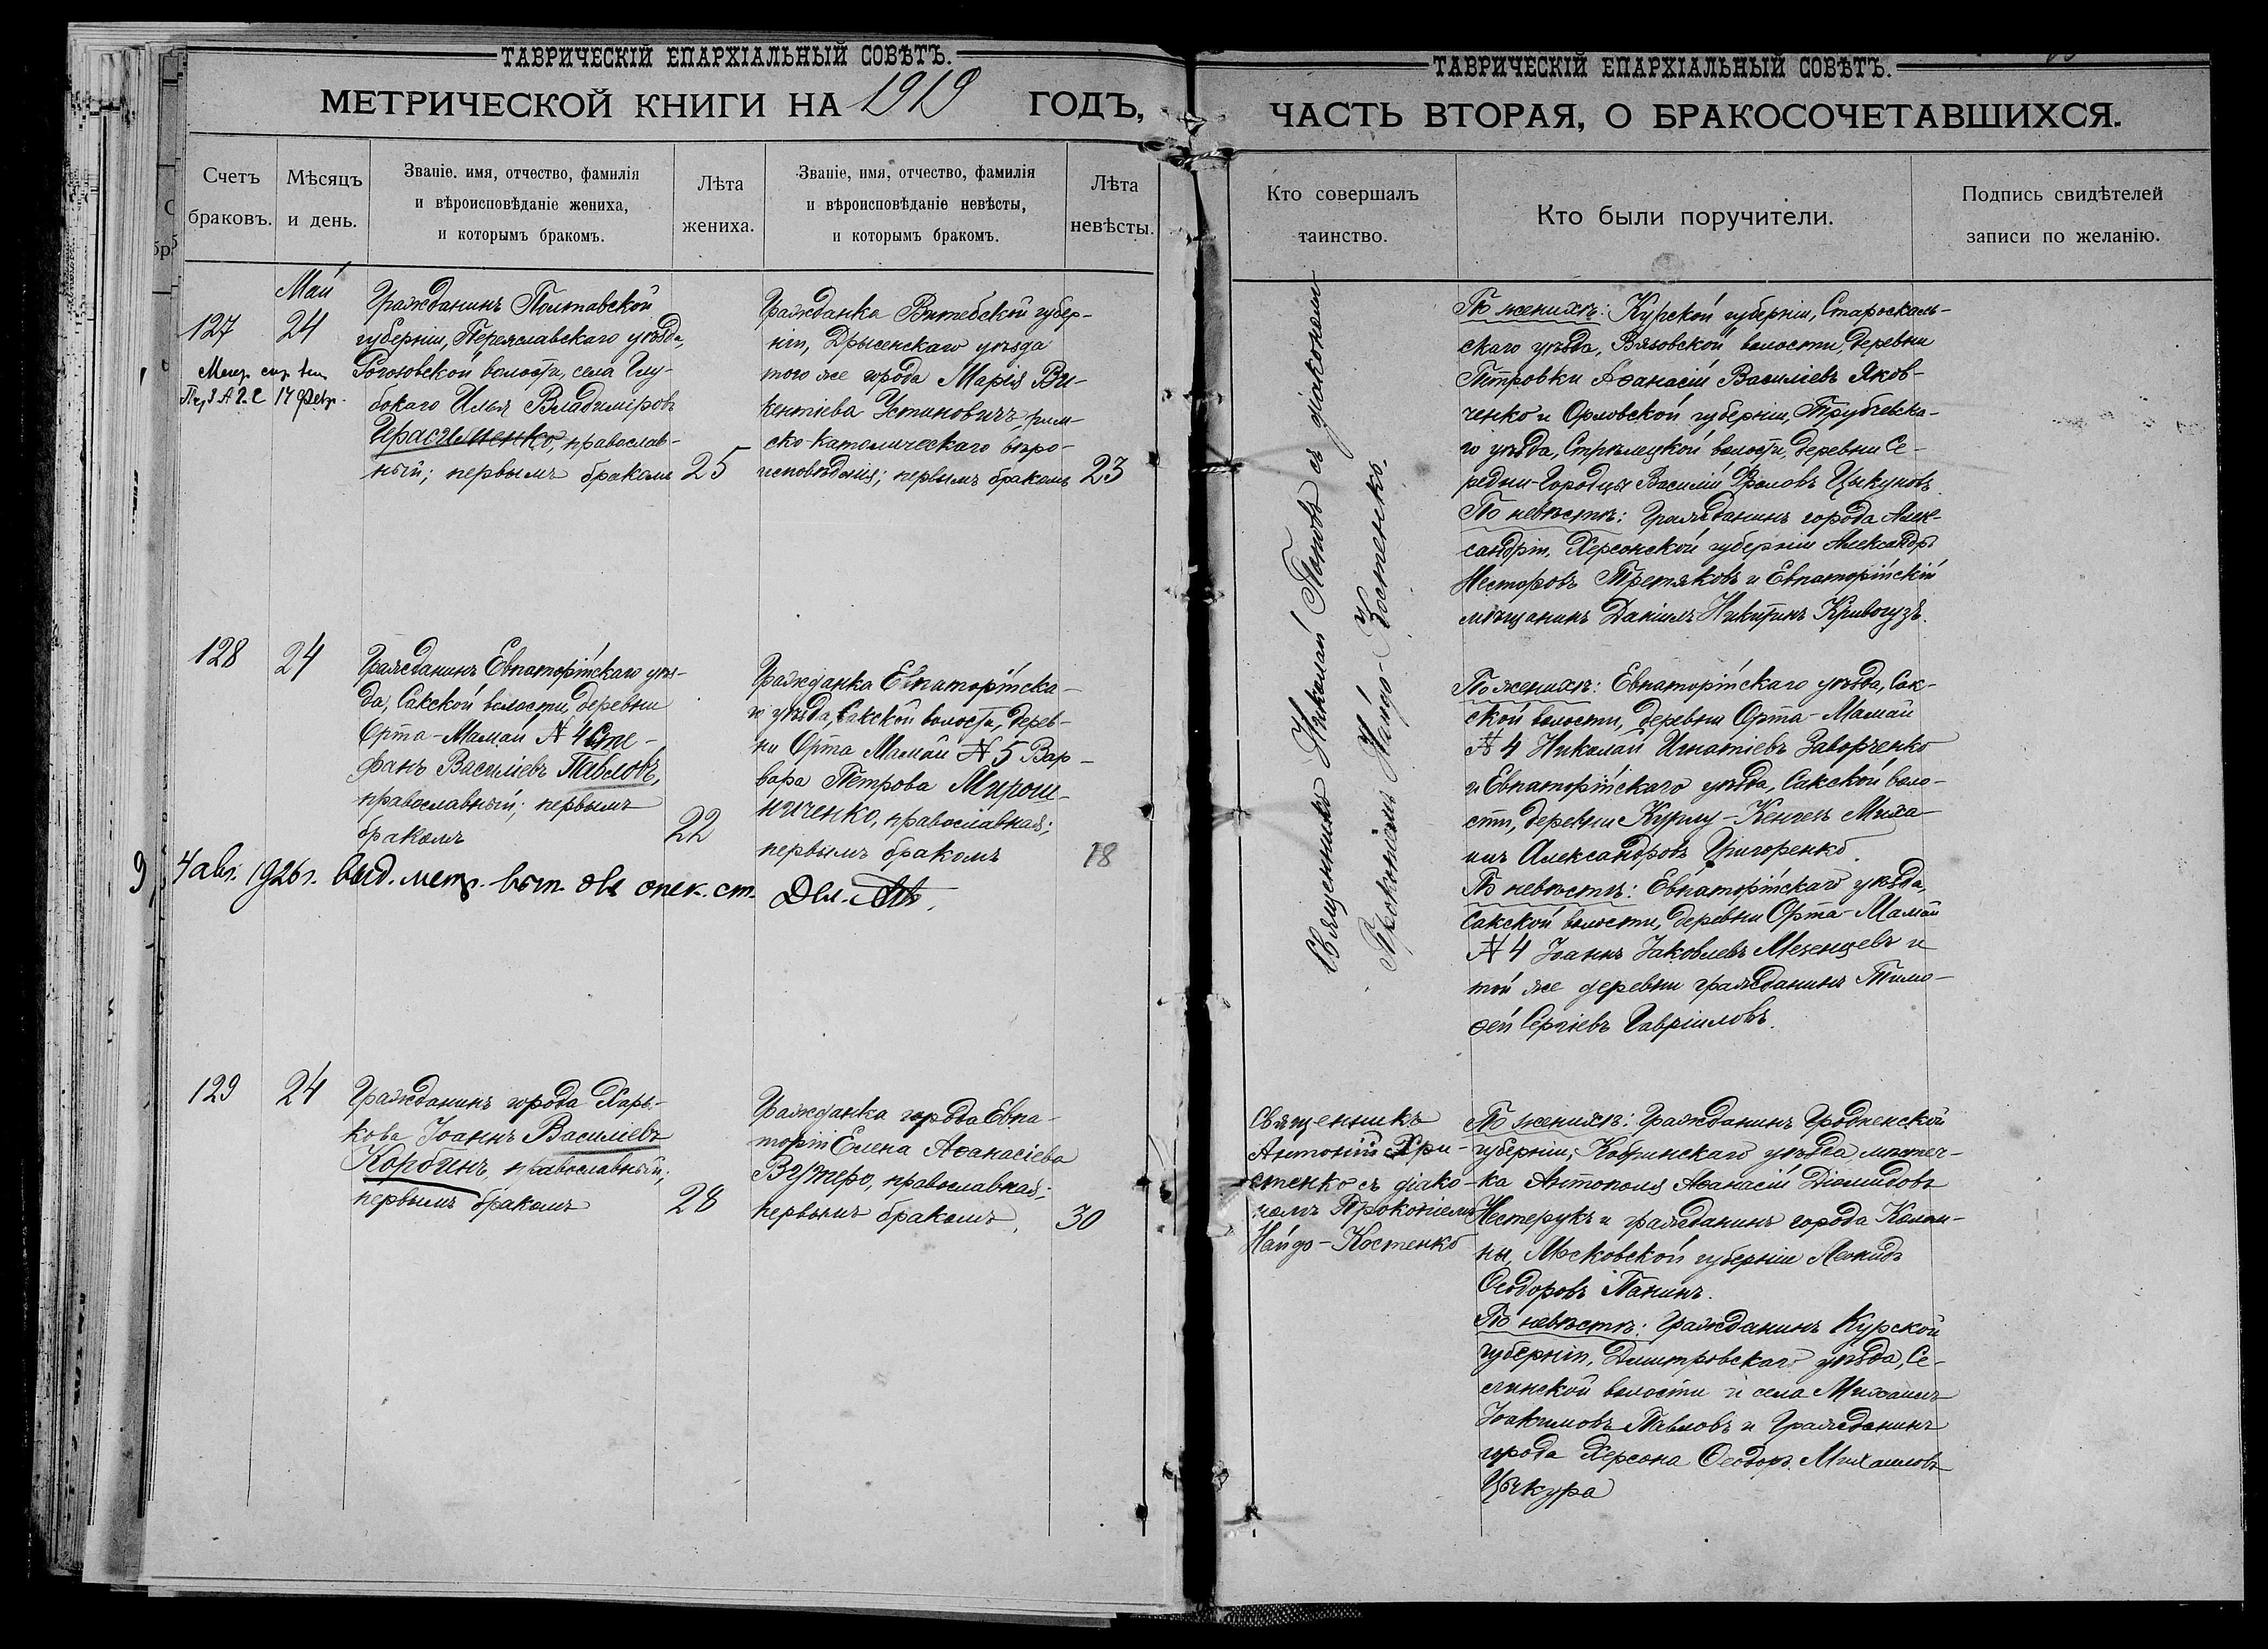 ТАВРИЧЕСКІЙ ЕПАРХІАЛЬНЫЙ СОВѢТЪ.
МЕТРИЧЕСКОЙ КНИГИ НА 1919 ГОДЪ,
Счетъ браковъ.
Мѣсяцъ и день.
Званіе. имя, отчество, фамилія
и вѣроисповѣданіе жениха,
и которымъ бракомъ.
Лѣта жениха.
Званіе, имя, отчество, фамилія
и вѣроисповѣданіе невѣсты,
и которымъ бракомъ.
Лѣта невѣсты.
127
Май
24
Гражданинъ Полтавской
губерніи, Переяславскаго уѣзда,
Рогозовской волости, села Глу-
бокаго Илья Владиміровъ
Герасименко, православ-
ный; первымъ бракомъ
25
Гражданка Витебской губер-
ніи, Дрысенскаго уѣзда
того же города Марія Ви-
кентіева Устиновичъ, рим-
ско-католическаго вѣро-
исповѣданія; первымъ бракомъ
23
128
24
Гражданинъ Евпаторійскаго уѣз-
да, Сакской волости, деревни
Орта-Мамай № 4 Сте-
фанъ Василіевъ Павловъ,
православный; первымъ
бракомъ
22
Гражданка Евпаторійска-
го уѣзда, Сакской волости, дерев-
ни Орта Мамай № 5 Вар-
вара Петрова Мирош-
ниченко, православная;
первымъ бракомъ
18
4 авг. 1926 г. выд. метр. вып.
129
24
Гражданинъ города Харь-
кова Іоаннъ Василіевъ
Корбинъ, православный;
первымъ бракомъ
28
Гражданка города Евпа-
торіи Елена Аѳанасіева
православная;
первымъ бракомъ
30
ТАВРИЧЕСКІЙ ЕПАРХІАЛЬНЫЙ СОВѢТЪ.
ЧАСТЬ ВТОРАЯ, О БРАКОСОЧЕТАВШИХСЯ.
Кто совершалъ
таинство.
Кто были поручители.
Подпись свидѣтелей
записи по желанію.
Священникъ Николай Поповъ съ діакономъ
Прокопіемъ Найдо-Костенко.
По женихѣ: Курской губерніи, Старосколь-
скаго уѣзда, Вязовской волости, деревни
Петровки Аѳанасій Василіевъ Яков-
ченко и Орловской губерніи, Трубчевска-
го уѣзда, Стрѣлецкой волости, деревни Се-
редни-Городцы Василій Фроловъ Цыкуновъ.
По невѣстѣ: Гражданинъ города Алек-
сандріи, Херсонской губерніи Александръ
Несторовъ Третяковъ и Евпаторійскій
мѣщанинъ Даніилъ Никитинъ Кривогузъ.
По женихѣ: Евпаторійскаго уѣзда, Сак-
ской волости, деревни Орта-Мамай
№ 4 Николай Игнатіевъ Заворченко
и Евпаторійскаго уѣзда, Сакской воло-
сти, деревни Курлу-Кенегезъ Миха-
илъ Александровъ Григоренко.
По невѣстѣ: Евпаторійскаго уѣзда,
Сакской волости, деревни Орта-Мамай
№ 4 Іоаннъ Іаковлевъ Мезенцевъ и
той же деревни гражданинъ Тимо-
ѳей Сергіевъ Гавріиловъ.
Священникъ
Антоній Хри-
стенко съ діако-
номъ Прокопіемъ
Найдо-Костенко
По женихѣ: Гражданинъ Гродненской
губерніи, Кобринскаго уѣзда мѣстеч-
ка Антополя Аѳанасій Діомидовъ
Нестерукъ и гражданинъ города Колом-
ны, Московской губерніи Леонидъ
Ѳеодоровъ Панинъ.
По невѣстѣ: Гражданинъ Курской
губерніи, Дмитровскаго уѣзда, Се-
линской волости и села Михаилъ
Іоакимовъ Павловъ и Гражданинъ
города Херсона Ѳеодоръ Михаиловъ
Цыкура